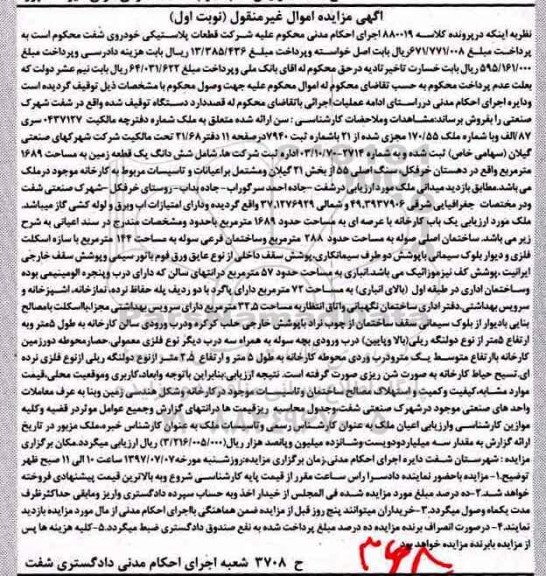 آگهی مزایده اموال غیرمنقول (نوبت اول)
نظربه اینکه درپرونده کلاسه ۸۸۰۰۱۹ اجرای احکام مدنی محکوم علیه شرکت قطعات پلاستیکی خودروی شفت محکوم است به
پرداخت مبلغ ۶۷۱/۷۷۱/۰۰۸ریال بابت اصل خواسته وپرداخت مبلغ ۱۳/۳۸۵/۴۳۶ ریال بابت هزینه دادرسی وپرداخت مبلغ
۵۹۵/۱۶۱/۰۰۰ ریال بابت خسارت تاخیر تادیه در حق محکوم له اقای بانک ملی وپرداخت مبلغ ۶۴/۰۳۱/۶۲۲ ریال بابت نیم عشر دولت که
بعلت عدم پرداخت محکوم به حسب تقاضای محکوم له اموال محکوم علیه جهت وصول محکوم با مشخصات ذیل توقیف گردیده است
ودایره اجرای احکام مدنی درراستای ادامه عملیات اجرائی باتقاضای محکوم له قصددارد دستگاه توقیف شده واقع در شفت شهرک
صنعتی را بفروش برساند:مشاهدات وملاحضات کارشناسی : سن ارائه شده متعلق به ملک شماره دفترچه مالکیت ۰۴۳۷۱۲۷ سری
۸۷/الف وبا شماره ملک ۱۷۰/۵۵ مجزی شده از ۲۱ باشماره ثبت ۷۹۴۰درصفحه ۱۱ دفتر ۲۱/۶۸ تحت مالکیت شرکت شهرکهای صنعتی
گیلان (سهامی خاص) ثبت شده به شماره ۲۷۱۴-۰۳/۱۰/۷۰ اداره ثبت شرکت ها، شامل شش دانگ یک قطعه زمین به مساحت ۱۶۸۹
مترمربع واقع در دهستان خرفکل سنگ اصلی ۵۵ از بخش ۲۱ گیلان ومشتمل براعیانات و تاسیسات مربوط به کارخانه موجود درملک
می باشد.مطابق بازدید میدانی ملک مورد ارزیابی درشفت -جاده احمد سرگوراب- جاده بداب- روستای خرفکل -شهرک صنعتی شفت
ودر مختصات جغرافیایی شرقی ۴۹,۳۹۳۷۹۰۶ و شمالی ۳۷,۱۲۷۶۹۲۹ واقع گردیده ودارای امتیازات اب وبرق و لوله کشی گاز میباشد.
ملک مورد ارزیابی یک باب کارخانه با عرصه ای به مساحت حدود ۱۶۸۹ مترمربع باحدود ومشخصات مندرج در سند اعیانی به شرح
زیر می باشد. ساختمان اصلی سوله به مساحت حدود ۲۸۸ مترمربع وساختمان فرعی سوله به مساحت ۱۴۴ مترمربع با سازه اسکلت
فلزی و دیوار بلوک سیمانی باپوشش دو طرف سیمانکاری،پوشش سقف داخلی از نوع عایق ورق فوم باتور سیمی وپوشش سقف خارجی
ایرانیت ،پوشش کف نیزموزائیک می باشد.انباری به مساحت حدود ۵۷ مترمربع درانتهای سالن که دارای درب وپنجره الومینیمی بوده
وساختمان اداری در طبقه اول (بالای انباری) به مساحت ۷۲ مترمربع دارای پاگرد با دو ردیف پله حفاظ نرده، نمازخانه، اشپزخانه و
سرویس بهداشتی،دفتر اداری ساختمان نگهبانی واتاق انتظاربه مساحت ۳۳,۵ مترمربع دارای سرویس بهداشتی مجزا،بااسکلت بامصالح
بنایی بادیوار از بلوک سیمانی سقف ساختمان از چوب نراد باپوشش خارجی حلب کرکره ودرب ورودی سالن کارخانه به طول ۵متر وبه
ارتفاع ۵متر از نوع دولنگه ریلی(بالا وپایین) درب ورودی بچه سوله به همراه سه درب دیگر نوع فلزی معمولی،حصارمحوطه دورزمین
کارخانه باارتفاع متوسط یک مترودرب وردی محوطه کارخانه به طول ۵ متر و ارتفاع ۲,۵ متر ازنوع دولنگه ریلی ازنوع فلزی نرده
ای،تسیح حیاط کارخانه به صورت شن ریزی صورت گرفته است. نتیجه ارزیابی:بنابراین باتوجه وابعاد،کاربری وموقعیت محلی،قیمت
موارد مشابه،کیفیت وکمیت و استهلاک مصالح ساختمان وتاسیسات موجود در کارخانه وشکل هندسی زمین وبنا به عرف معاملات
واحد های صنعتی موجود درشهرک صنعتی شفت،وجدول محاسبه ریزقیمت ها درانتهای گزارش وجمیع عوامل موثردر قضیه وکلیه
موازین کارشناسی وارزیابی اعیان ملک به عنوان کارشناس رسمی وتاسیسات ملک به عنوان کارشناس خبره،ملک مزبور در تاریخ
ارائه گزارش به مقدار سه میلیاردودویست وشانزده میلیون وپانصد هزار ریال(۳/۲۱۶/۰۰۵/۰۰۰) ریال ارزیابی میگردد.مکان برگزاری
مزایده : شهرستان شفت دایره اجرای احکام مدنی.زمان برگزاری مزایده:روزشنبه مورخه ۱۳۹۷/۰۷/۰۷ ساعت ۱۰ الی ۱۱ صبح ظهر
توضیح:۱- مزایده باحضور نماینده دادسرا راس ساعت مقرر از قیمت پایه کارشناسی شروع وبه بالاترین قیمت پیشنهادی فروخته
خواهد شد.۲-ده درصد مبلغ مورد مزایده شده فی المجلس از خیدار اخذ وبه حساب سپرده دادگستری واریز ومابقی حداکثرظرف
مدت یکماه وصول میگردد.۳-خریداران میتوانند پنج روز قبل از مزایده ضمن هماهنگی بااجرای احکام مدنی از مال مورد مزایده بازدید
نمایند.۴- درصورت انصراف برنده مزایده ده درصد مبلغ پرداخت شده به نفع صندوق دادگستری ضبط میگردد.۵-کلیه هزینه ها پس
از مزایده بابرنده مزایده خواهد بود.
ح ۳۷۰۸ شعبه اجرای احکام مدنی دادگستری شفت